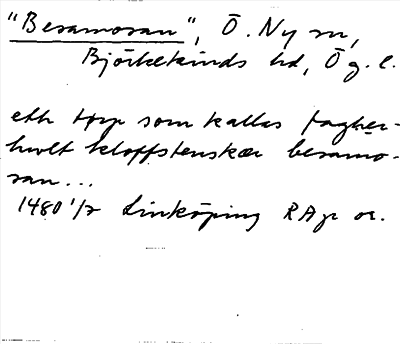 "Besamosan", Ö. Ny sn,
Björkekinds hd, Ög. l.
eth torp som kallas fagher-
hult kloffstenskær besamo-
san...
1480 1/2 Linköping RAp or.